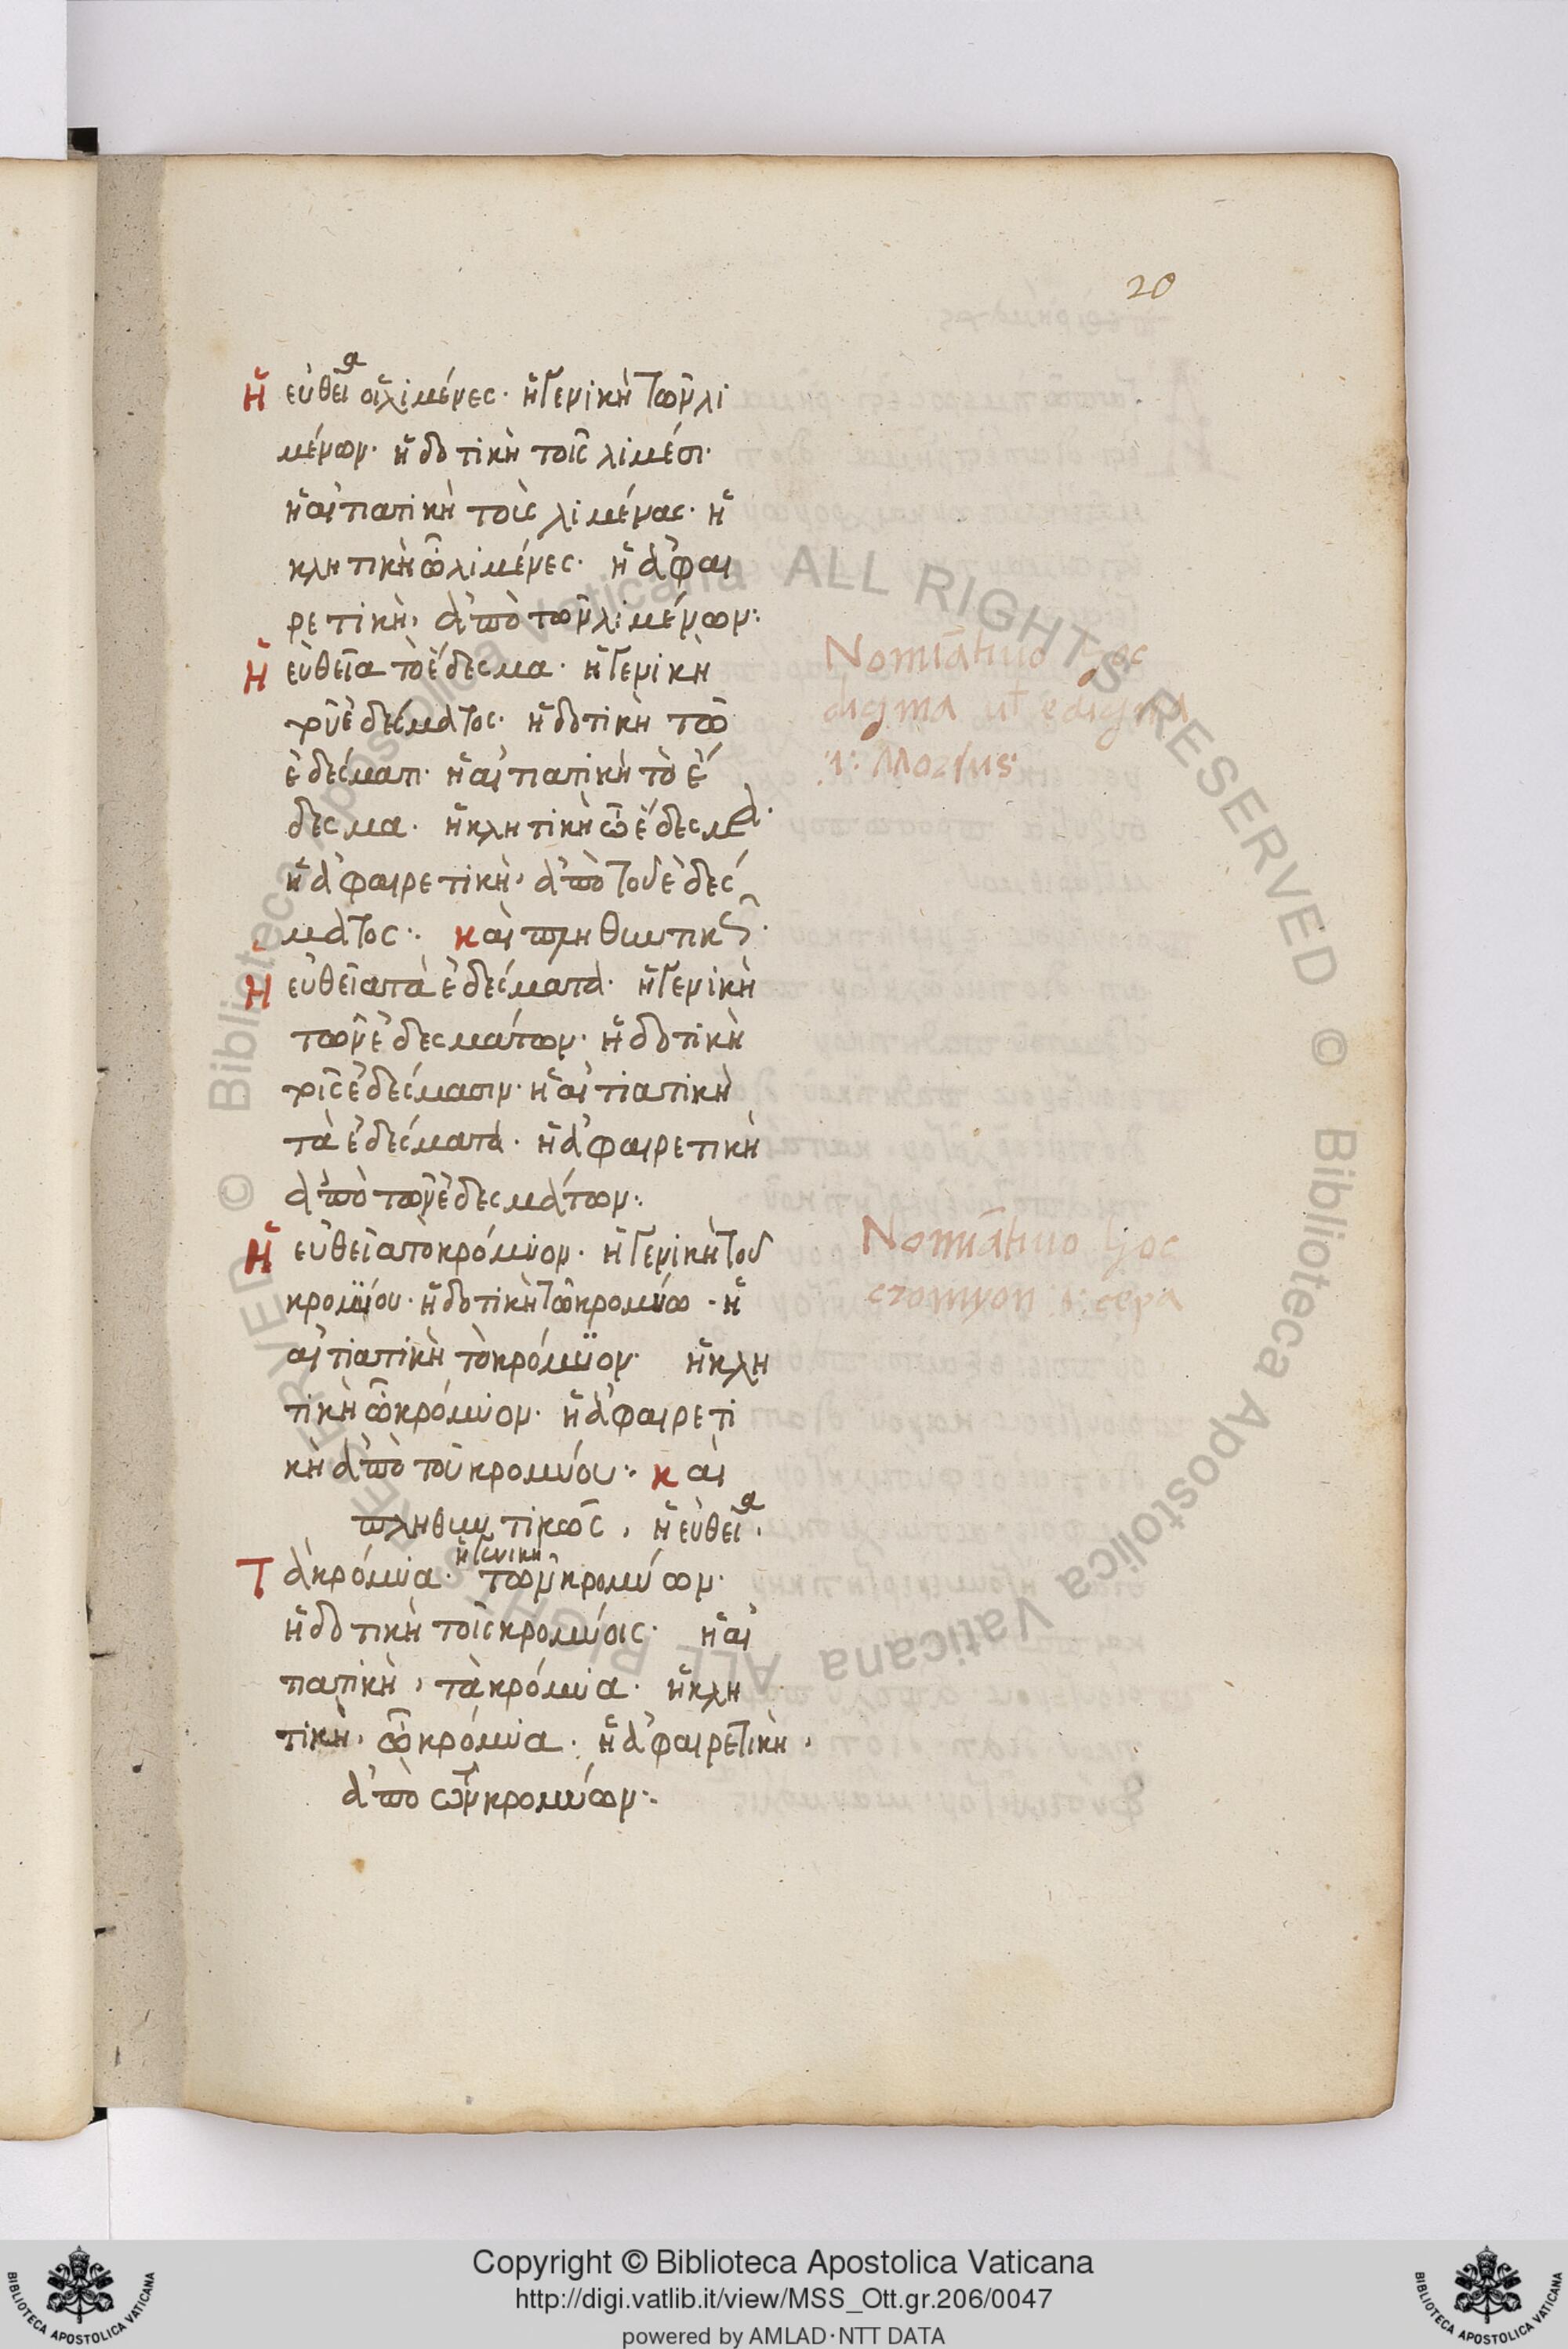 20
ἡ εὐθεῖα οἱ λιμένες· ἡ γενικὴ τῶν λι
μένων· ἡ δοτικὴ τοῖς λιμέσι·
ἡ αἰτιατικὴ τοὺς λιμένας· ἡ
κλητικὴ ὦ λιμένες· ἡ ἀφαι
ρετικὴ, ἀπὸ τῶν λιμένων:
Ἡ εὐθεῖα τὸ ἔδεσμα· ἡ γενικὴ
τοῦ ἐδέσματος· ἡ δοτικὴ τῶ
ἐδέσματι· ἡ αἰτιατικὴ τὸ ἔ
δεσμα· ἡ κλητικὴ ὦ ἔδεσμα·
ἡ ἀφαιρετικὴ, ἀπὸ τοῦ ἐδέσ
ματος:· καὶ πληθυντικῶς·
Ἡ εὐθεῖα τὰ ἐδέσματα· ἡ γενικὴ
τῶν ἐδεσμάτων· ἡ δοτικὴ
τοῖς ἐδέσμασιν· ἡ αἰτιατικὴ
τὰ ἐδέσματα· ἡ ἀφαιρετικὴ
ἀπὸ τῶν ἐδεσμάτων:
Ἡ εὐθεῖα το κρόμυον· ἡ γενικὴ τοῦ
κρομύου· ἡ δοτικὴ τῶ κρομύω· ἡ
αἰτιατικὴ τὸ κρόμϋον· ἡ κλη
τικὴ ὦ κρόμυον· ἡ ἀφαιρετι
κὴ ἀπὸ τοῦ κρομύου:· καὶ
πληθυντικῶς, ἡ εὐθεῖα·
Τὰ κρόμυα· ἡ γενικὴ τῶν κρομύων·
ἡ δοτικὴ τοῖς κρομύοις· ἡ αἰ
τιατικὴ, τὰ κρόμυα· ἡ κλη
τικὴ, ὦ κρόμυα· ἡ ἀφαιρετικὴ,
ἀπὸ τῶν κρομύων:·
Nomiātiuo hoc
digma ut edigma
.i. Morsus
Nomiātiuo hoc
cromyon .i. cepa
© Biblioteca Apostolica Vaticana ALL RIGHTS RESERVED
Copyright © Biblioteca Apostolica Vaticana
http://digi.vatlib.it/view/MSS_Ott.gr.206/0047
powered by AMLAD·NTT DATA
BIBLIOTECA APOSTOLICA VATICANA
BIBLIOTECA APOSTOLICA VATICANA